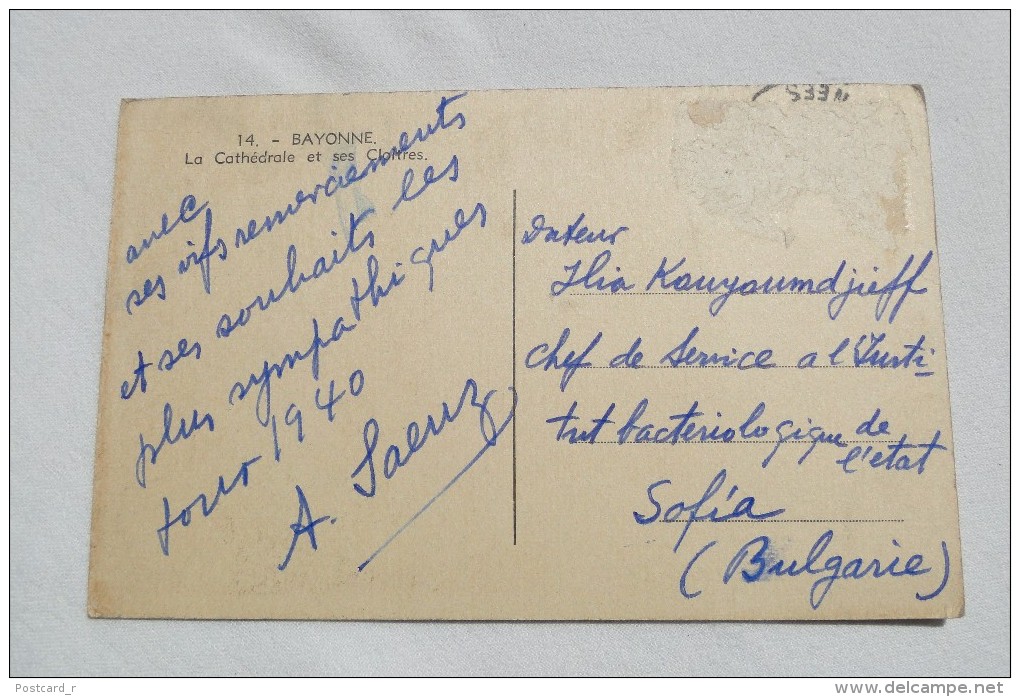 NÉES
14. - BAYONNE.
La Cathédrale et ses Cloîtres.
avec
ses vifs remerciements
et ses souhaits les
plus sympathiques
1940
A. Saenz
Ilia Kouyoumdjieff
chef de Service a l'Insti-
tut bactériologique de
l'état
Sofía
(Bulgarie)
Postcard_r
www.delcampe.net